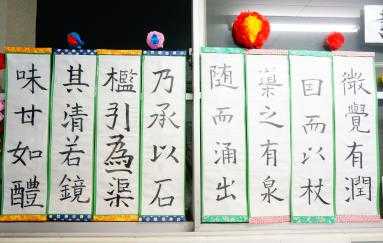 微覺有潤
因而以杖
導之有泉
随而涌出
乃承以石
檻引為一渠
其清若鏡
味甘如醴